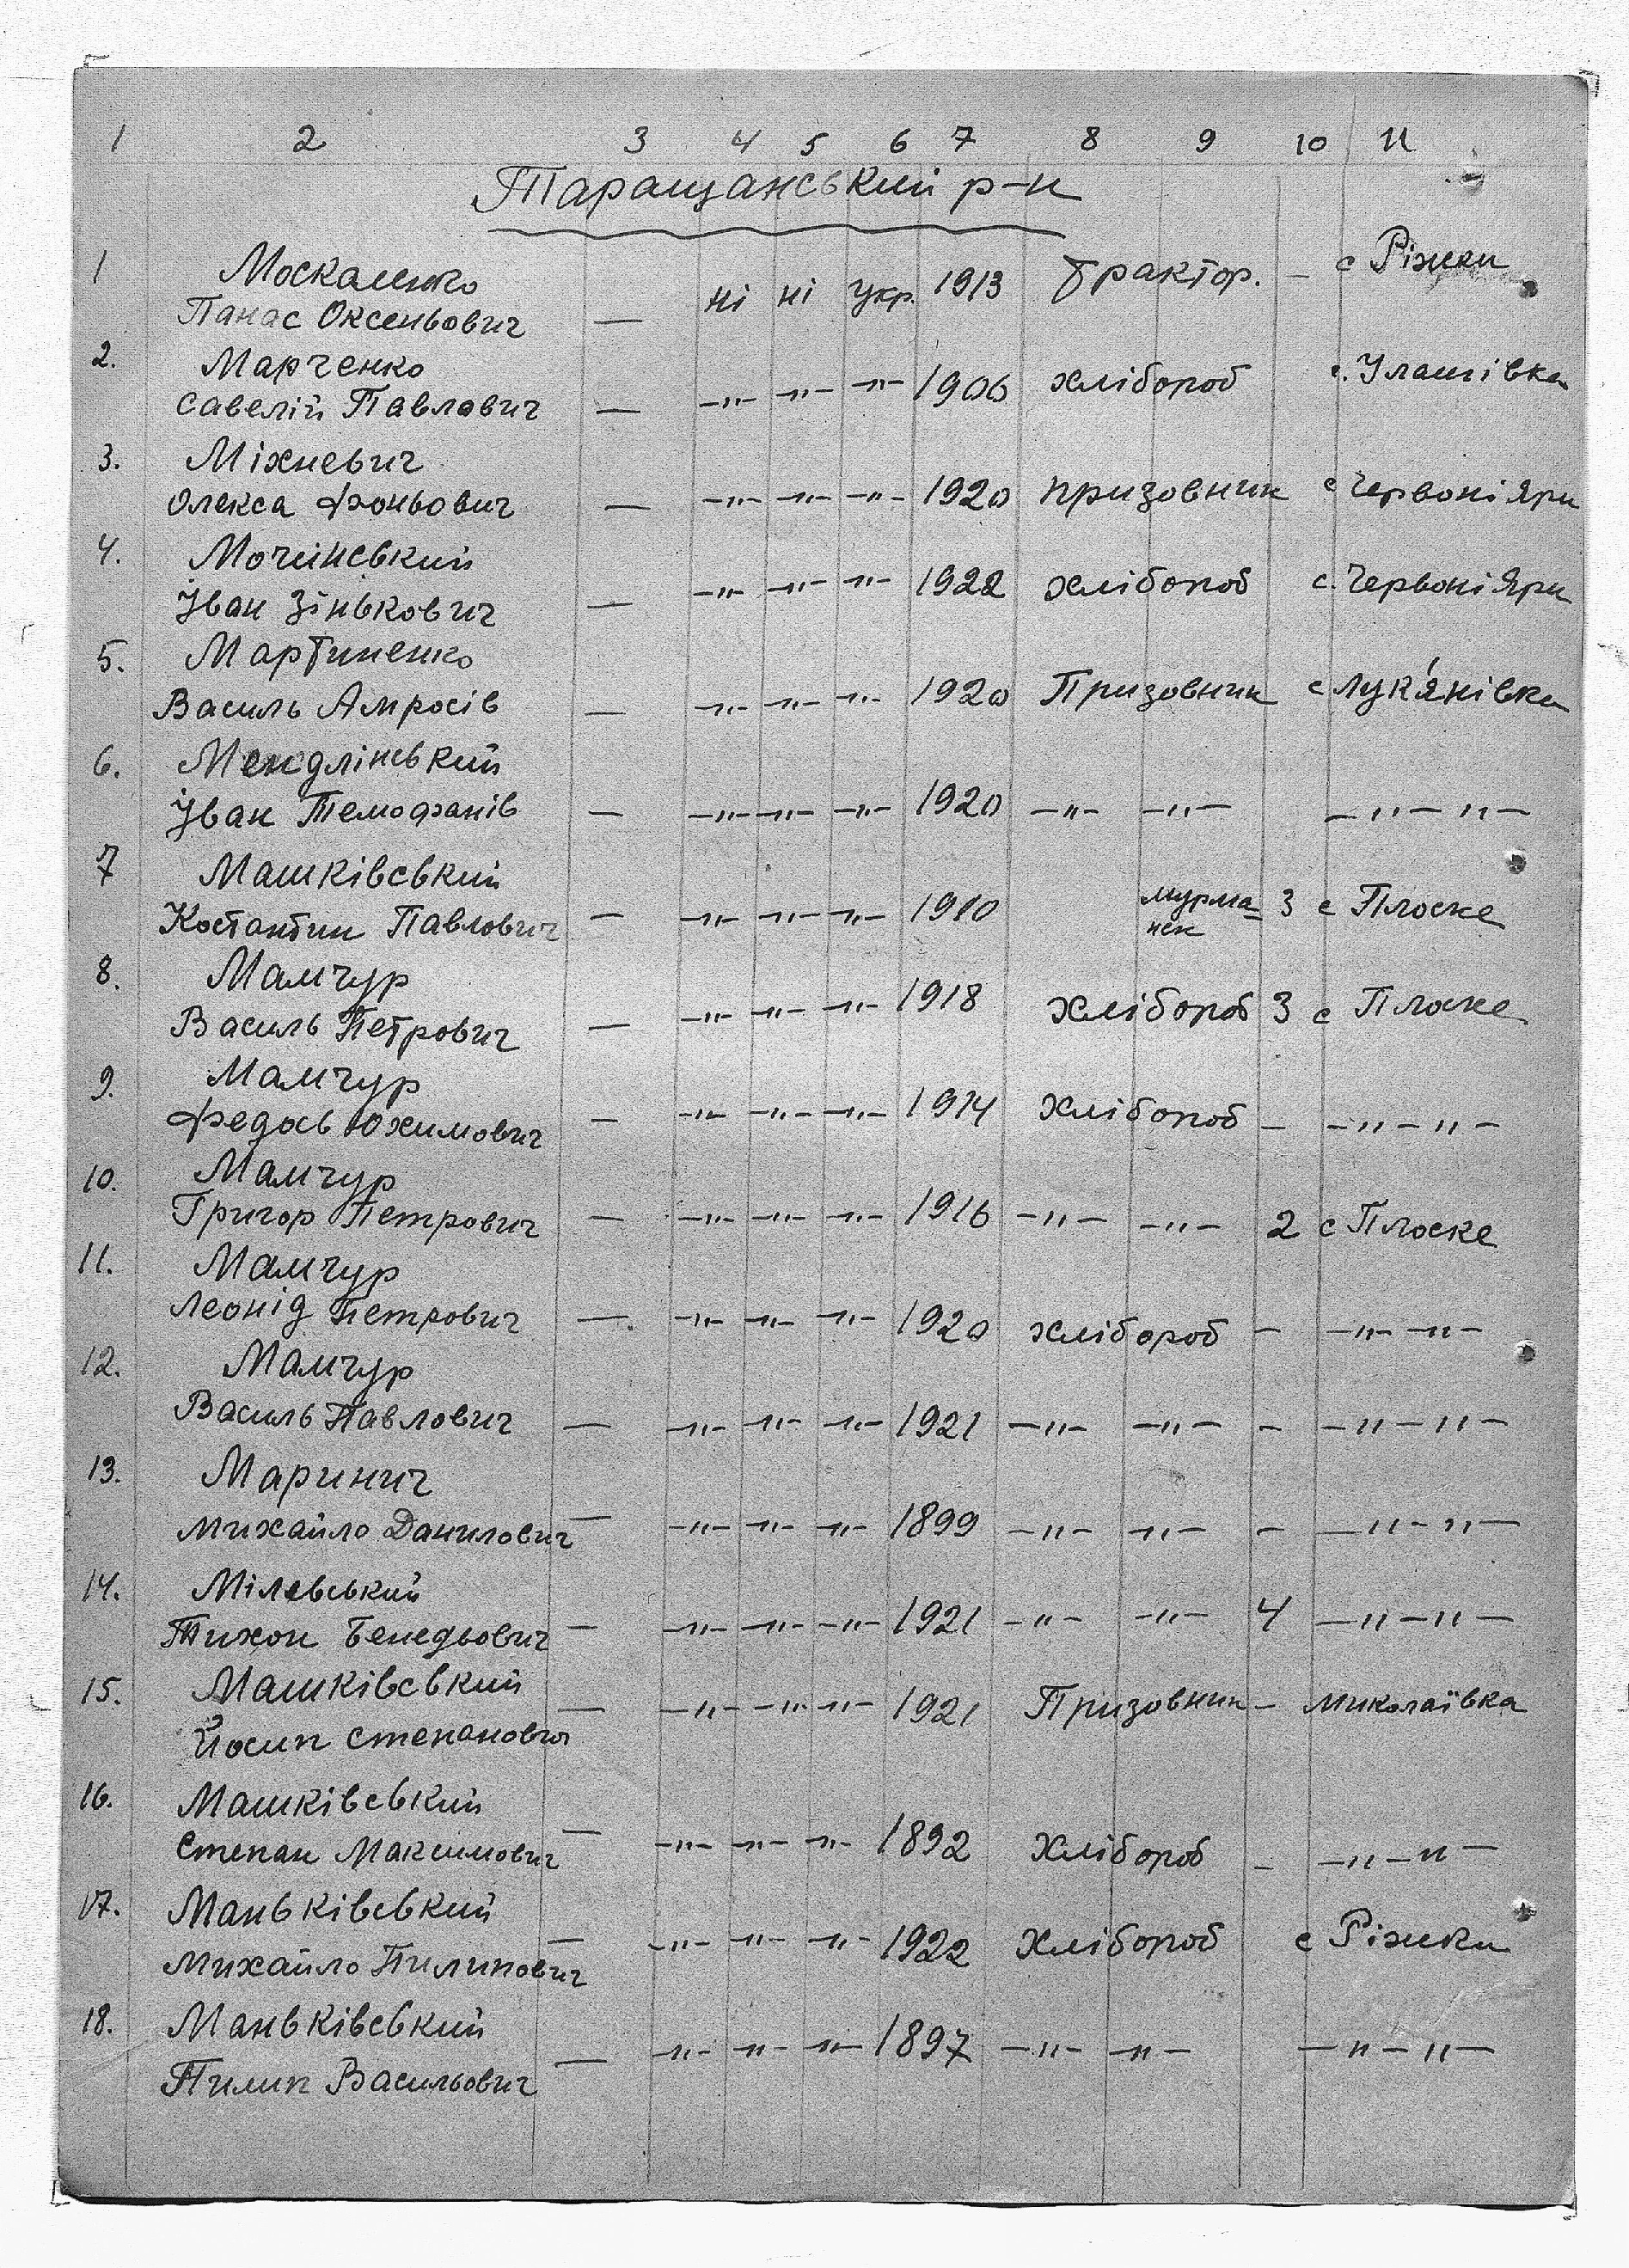 1 2 3 4 5 6 7 8 9 10 11
Таращанський р-н
1 Москаленко
Панас Оксеньович — ні ні укр. 1913 Трактор. – с Ріжки
2. Марченко
Савелій Павлович — –"– –"– –"– 1906 хлібороб с. Улашівка
3. Міхневич
Олекса Фоньович — –"– –"– –"– 1920 призовник с Червоні Яри
4. Мочинський
Іван Зінькович — –"– –"– –"– 1922 хлібороб с. Червоні Яри
5. Мартиненко
Василь Амросів — –"– –"– –"– 1920 Призовник с Лук'янівка
6. Мендлінський
Іван Темофанів — –"– –"– –"– 1920 –"– –"– –"–"–
7 Машківський
Костантин Павлович — –"– –"– –"– 1910 мурма- 3 с Плоске
нск
8. Мамчур
Василь Петрович — –"– –"– –"– 1918 хлібороб 3 с Плоске
9. Мамчур
Федось Юхимович — –"– –"– –"– 1914 хлібороб – –"–"–
10. Мамчур
Григор Петрович — –"– –"– –"– 1916 –"– –"– 2 с Плоске
11. Мамчур
Леонід Петрович —. –"– –"– –"– 1920 хлібороб – –"– –"–
12. Мамчур
Василь Павлович — –"– –"– –"– 1921 –"– –"– – –"–"–
13. Маринич
Михайло Данилович — –"– –"– –"– 1899 –"– –"– – –"–"–
14. Мілевський
Тихон Бенедьович — –"– –"– –"– 1921 –"– –"– 4 –"–"–
15. Машківський — –"– –"– –"– 1921 Призовник – Миколаївка
Йосип Степанович
16. Машківський
Степан Максимович — –"– –"– –"– 1892 Хлібороб – –"–"–
17. Маньківський
Михайло Пилипович — –"– –"– –"– 1922 Хлібороб с Ріжки
18. Маньківський
Пилип Васильович — –"– –"– –"– 1897 –"– –"– –"–"–